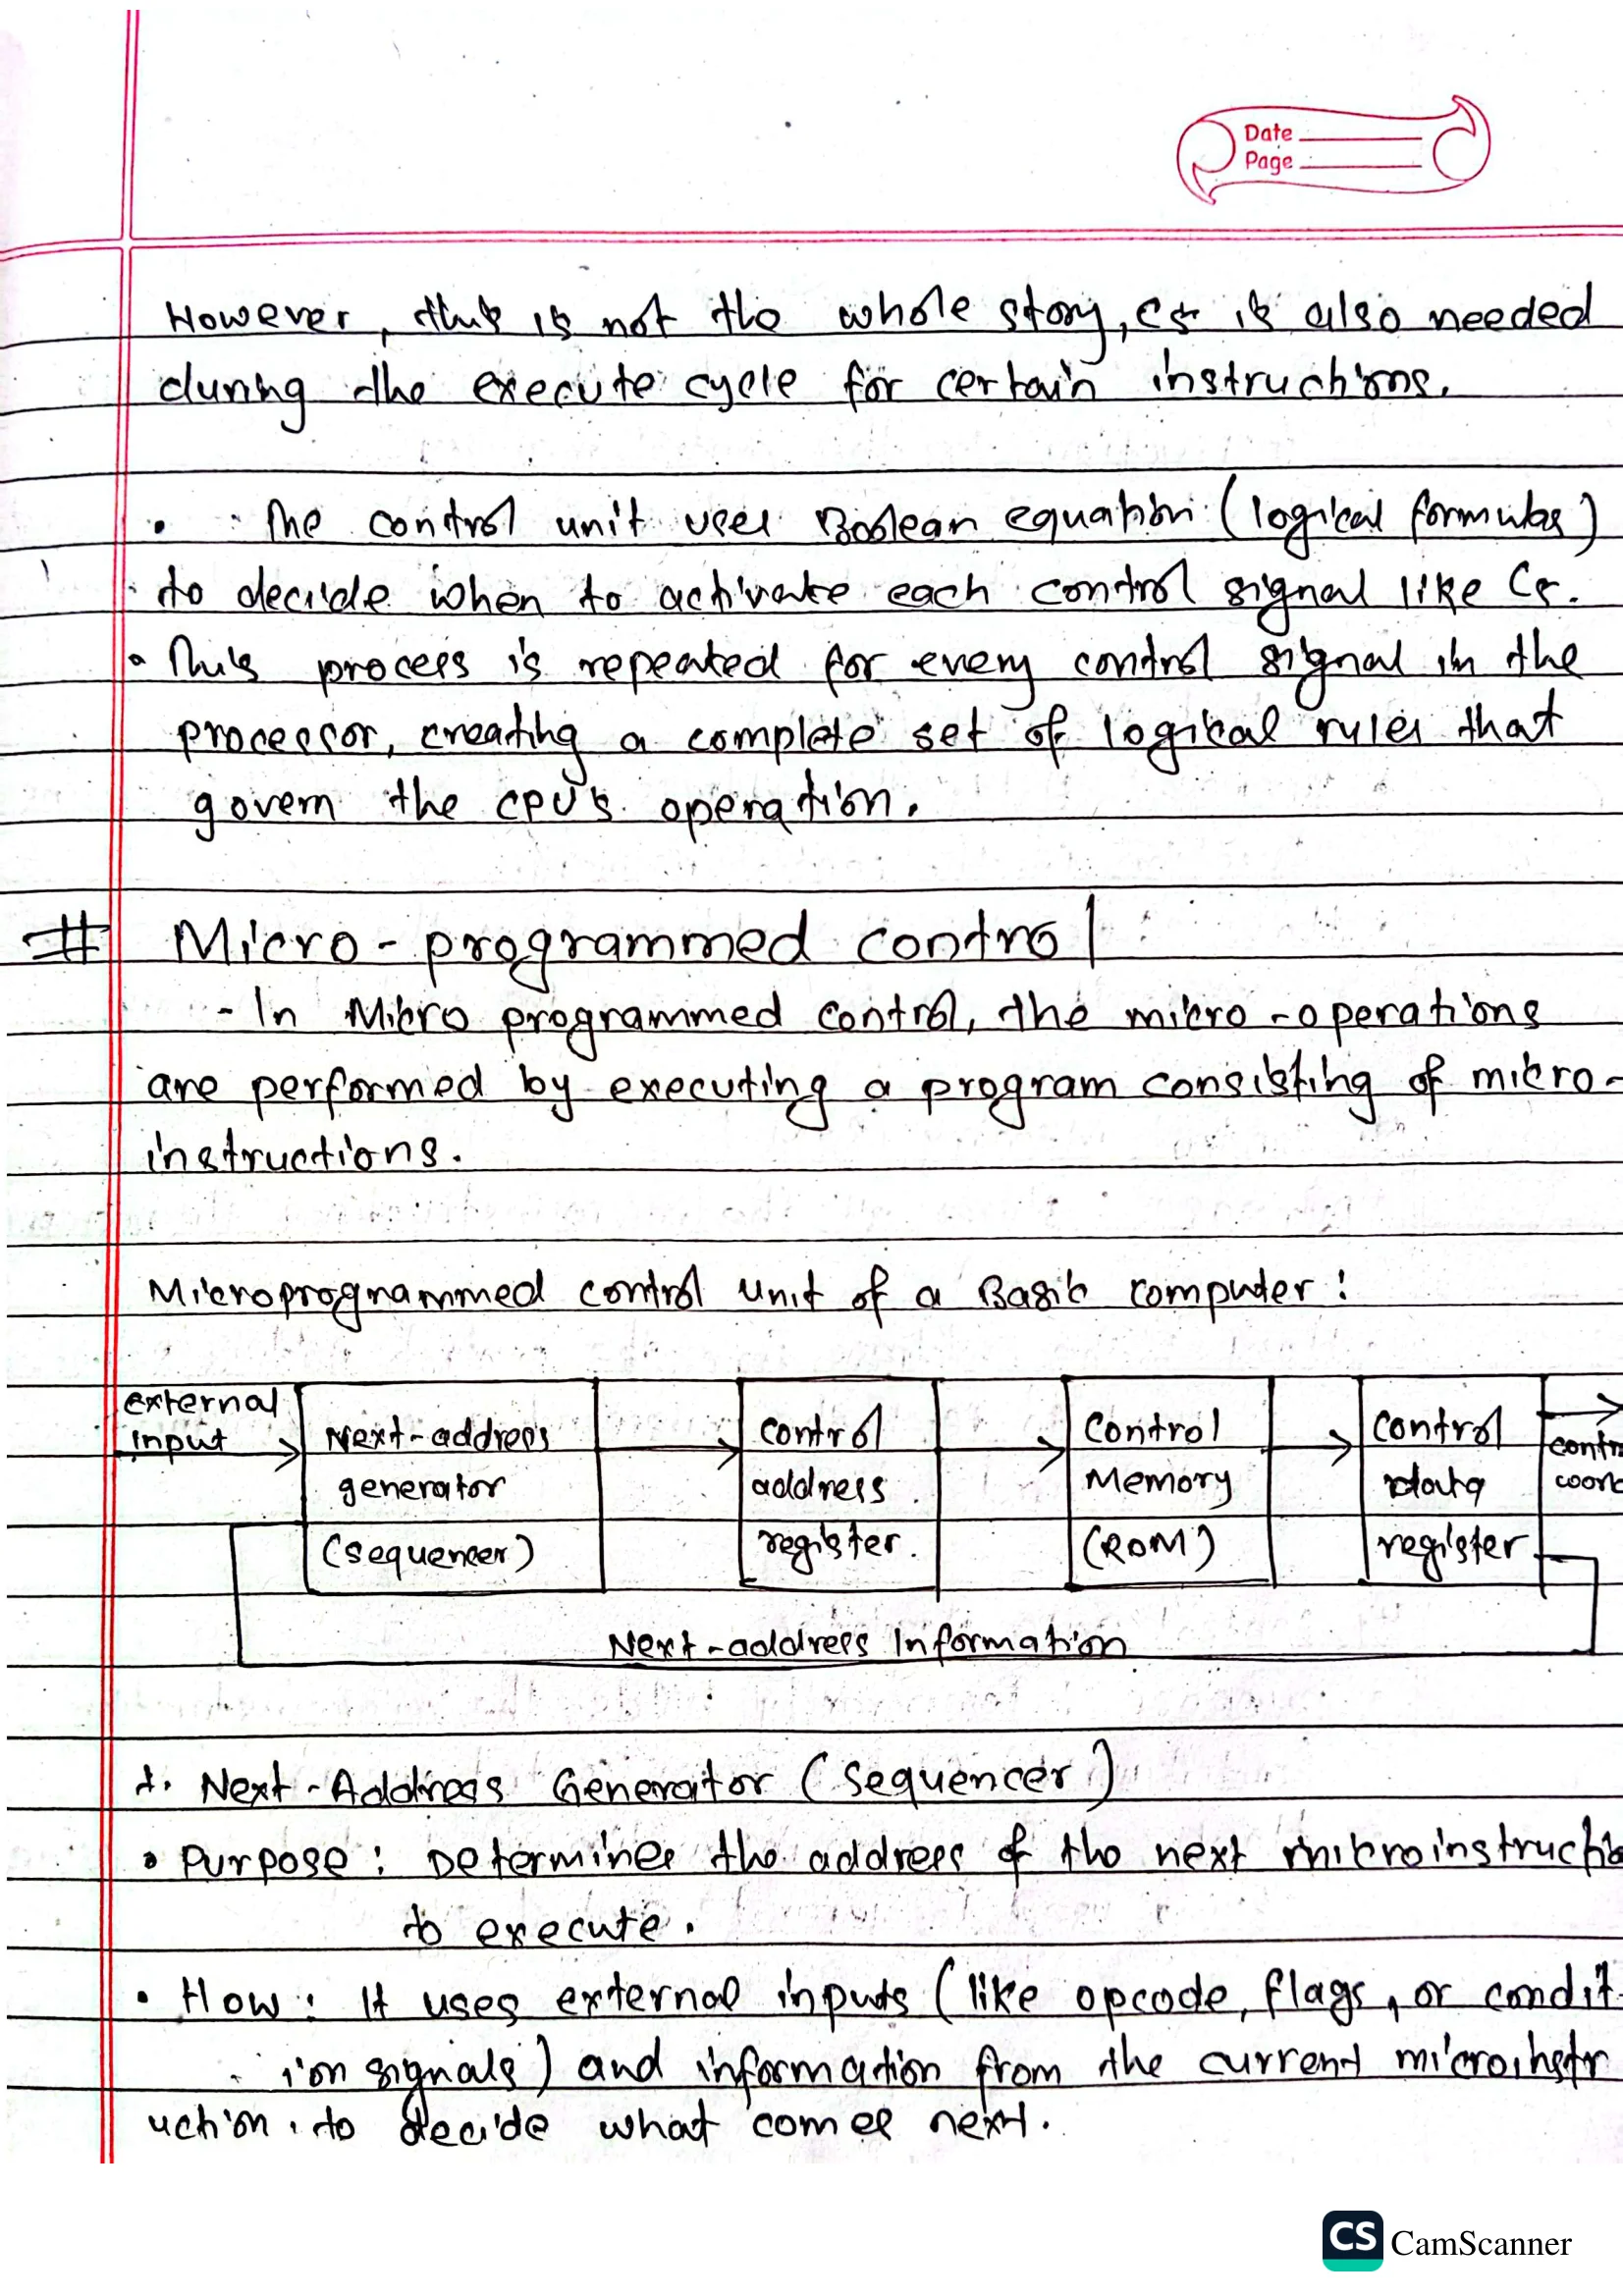 Date
Page
However, this is not the whole story, C5 is also needed
during the execute cycle for certain instructions.
• The control unit uses Boolean equation (logical formulas)
to decide when to activate each control signal like C5.
• This process is repeated for every control signal in the
processor, creating a complete set of logical rules that
govern the CPU's operation.
# Micro-programmed control
- In Micro programmed control, the micro-operations
are performed by executing a program consisting of micro-
instructions.
Microprogrammed control unit of a Basic computer:
external
input
Next-address
generator
(sequencer)
control
address
register.
Control
Memory
(ROM)
control
data
register
contr
word
Next-address Information
1. Next-Address Generator (Sequencer)
• Purpose: Determines the address of the next microinstructio
to execute.
• How: It uses external inputs (like opcode, flags, or condit
ion signals) and information from the current microinstr
uction to decide what comes next.
CS CamScanner